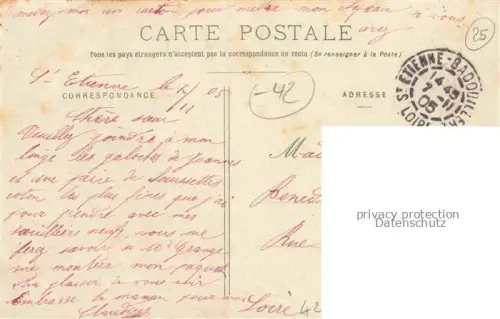 mettez moi un carton pour mettre mon
à vous
CARTE POSTALE
25
Tous les pays étrangers n'acceptent pas la correspondance au recto (Se renseigner à la Poste.)
St Etienne le 7/11 05
-42
CORRESPONDANCE
ADRESSE
ST ETIENNE-BADOUILLERE
14 45
7 - 11
05
LOIRE
Chère sœur
Veuillez joindre à mon
linge les galoches de Joannes
et une paire de
coton les plus fines que j'ai
pour prendre avec mes
souliers neufs, vous me
ferez savoir si Mr Grange
me montera mon paquet
Au plaisir de vous voir
Embrasse la maman pour moi
Claudius
Mad
Bened
Rue
Loire
42
privacy protection
Datenschutz